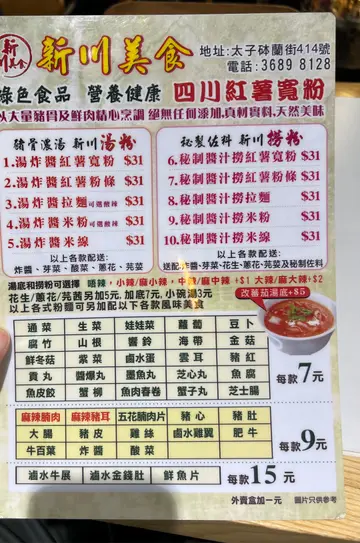 新川美食
新川美食 地址:太子砵蘭街414號
電話:3689 8128
綠色食品 營養健康 四川紅薯寬粉
以大量豬骨及鮮肉精心烹調 絕無任何添加,真材實料,天然美味
豬骨濃湯 新川湯粉
1.湯炸醬紅薯寬粉 $31
2.湯炸醬紅薯粉條 $31
3.湯炸醬拉麵可選酸辣 $31
4.湯炸醬米粉可選酸辣 $31
5.湯炸醬米線 $31
以上各款配送:
炸醬、芽菜、酸菜、蔥花、芫荽
秘製佐料 新川撈粉
6.秘制醬汁撈紅薯寬粉 $31
7.秘制醬汁撈紅薯粉條 $31
8.秘制醬汁撈拉麵 $31
9.秘制醬汁撈米粉 $31
10.秘制醬汁撈米線 $31
以上各款配送:
送配炸醬、芽菜、花生、蔥花、芫荽及秘制佐料
湯底和撈粉可選擇 唔辣,小辣/麻小辣,中辣/麻中辣 +$1 大辣/麻大辣+$2
花生/蔥花/芫茜另加5元,加底7元,小碗減3元
以上各式粉麵可另加配以下各款風味美食
改蕃茄湯底+$5
通菜 生菜 娃娃菜 蘿蔔 豆卜
腐竹 山根 響鈴 海帶 金菇
鮮冬菇 紫菜 鹵水蛋 雲耳 豬紅
貢丸 醬爆丸 墨魚丸 芝心丸 魚腐
魚皮餃 蟹柳 魚肉春卷 蟹子丸 芝士腸
每款7元
麻辣腩肉 麻辣豬耳 五花腩肉片 豬心 豬肚
大腸 豬皮 雞絲 鹵水雞翼 肥牛
牛百葉 炸醬 酸菜
每款9元
滷水牛展 滷水金錢肚 鮮魚片 每款15元
外賣盒加一元 圖片只供參考